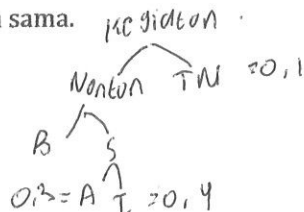 sama.
Kegiatan
Nonton TN = 0,1
B S
0,3 = A I = 0,4